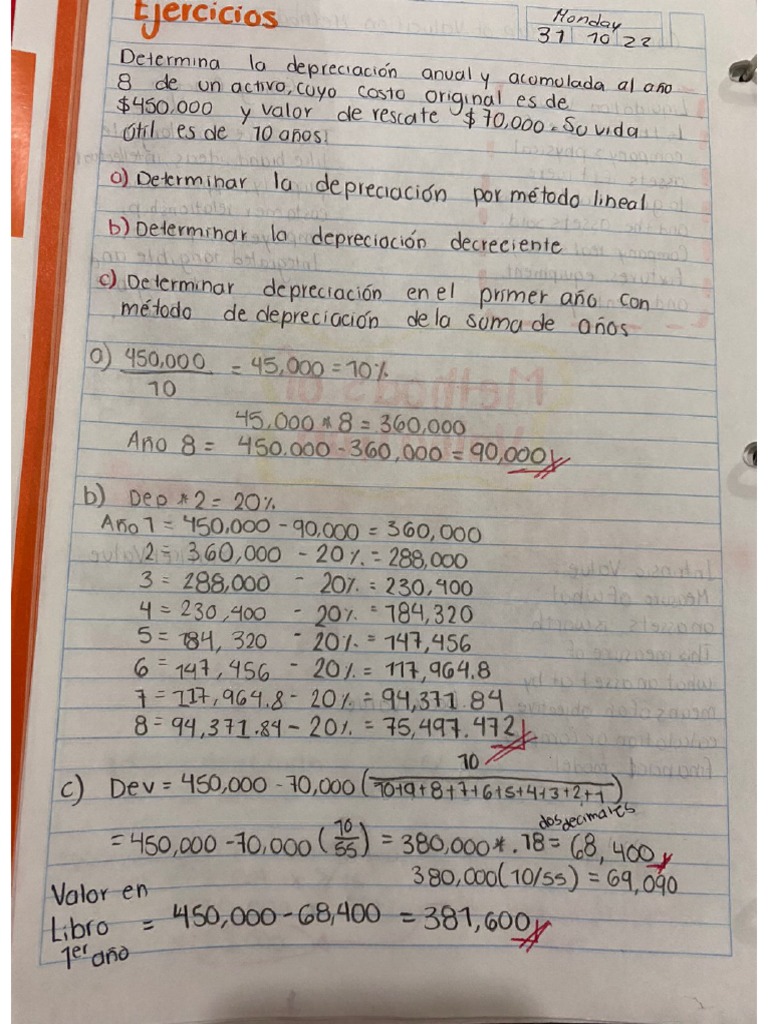 Ejercicios
Monday
31 10 22
Determina la depreciación anual y acumulada al año
8 de un activo, cuyo costo original es de
$450.000 y valor de rescate $70,000. Su vida
útil es de 10 años.
a) Determinar la depreciación por método lineal
b) Determinar la depreciación decreciente
c) Determinar depreciación en el primer año con
método de depreciación de la suma de años
a) 450,000 / 10 = 45,000 = 10%
45,000 * 8 = 360,000
Año 8 = 450.000 - 360,000 = 90,000
b) Dep * 2 = 20%
Año 1 = 450,000 - 90,000 = 360,000
2 = 360,000 - 20% = 288,000
3 = 288,000 - 20% = 230,400
4 = 230,400 - 20% = 184,320
5 = 184,320 - 20% = 147,456
6 = 147,456 - 20% = 117,964.8
7 = 117,964.8 - 20% = 94,371.84
8 = 94,371.84 - 20% = 75,497.472
c) Dev = 450,000 - 70,000 (10 / 10+9+8+7+6+5+4+3+2+1)
dos decimales
= 450,000 - 70,000 (10/55) = 380,000 * .18 = 68,400
380,000 (10/55) = 69,090
Valor en
Libro = 450,000 - 68,400 = 381,600
1er año